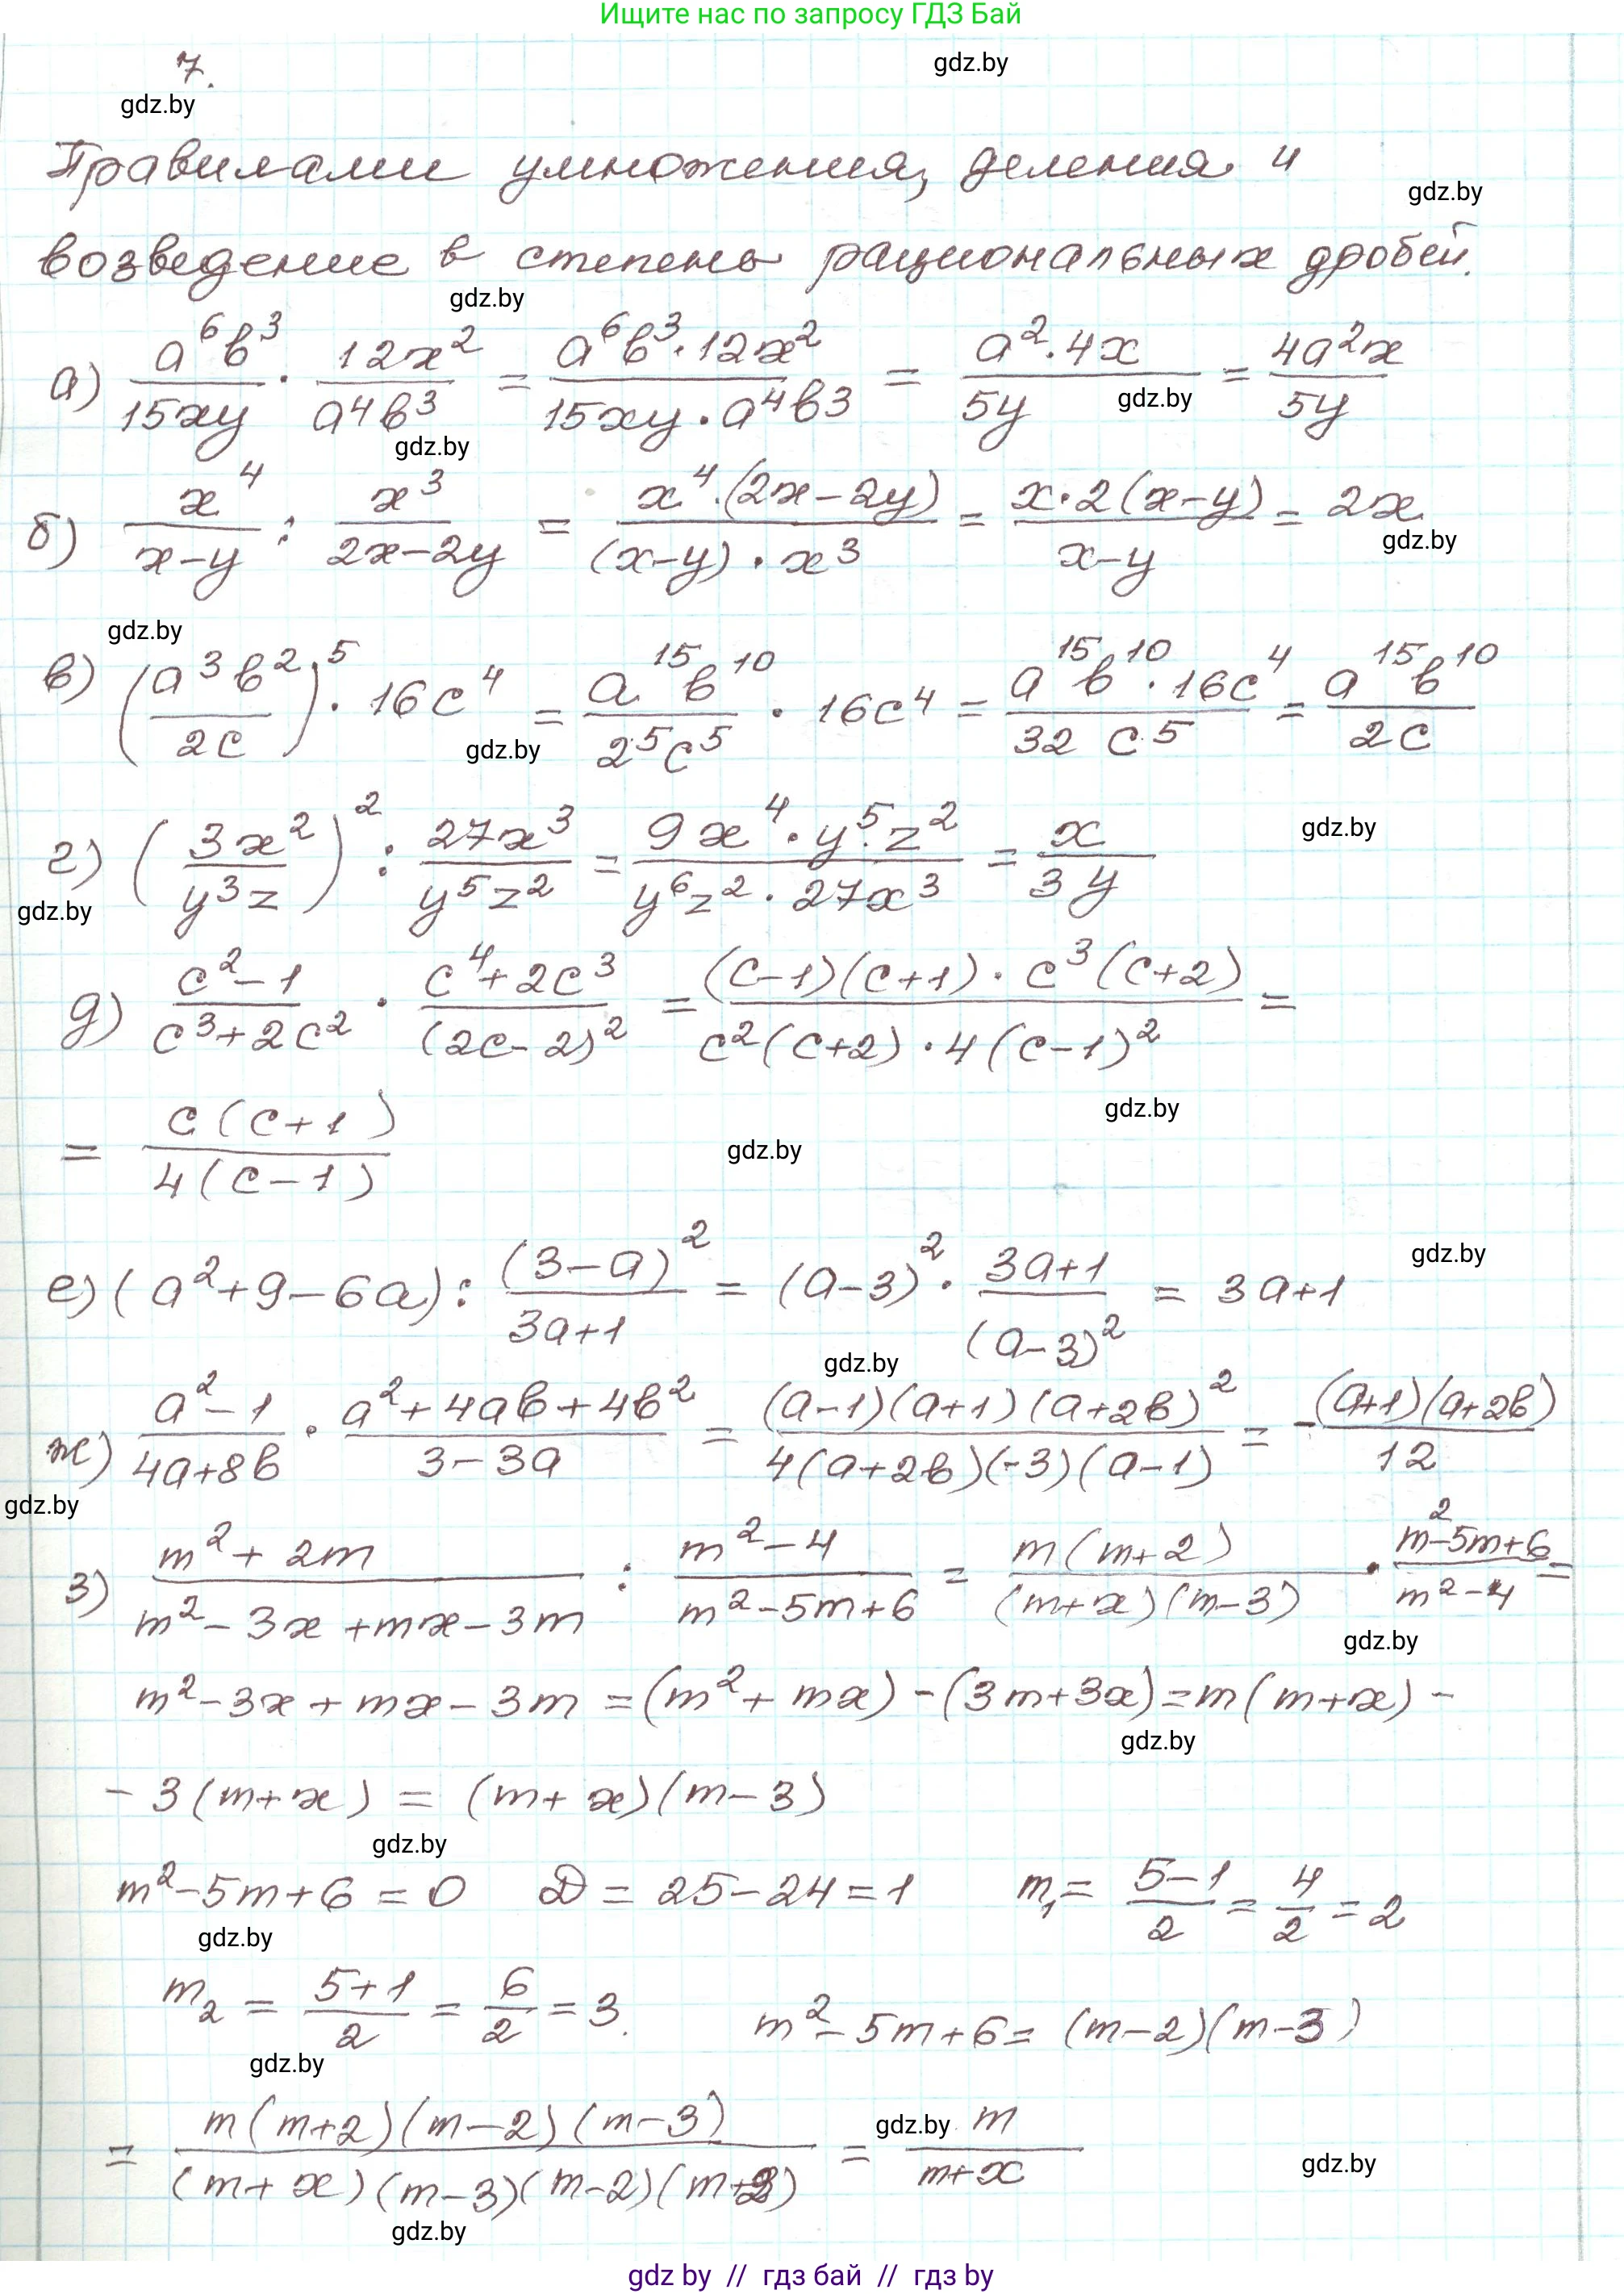 Ищите нас по запросу ГДЗ Бай
7.
gdz.by
gdz.by
Правилами умножения, деления и
gdz.by
возведение в степень рациональных дробей.
gdz.by
а) a⁶b³/15xy · 12x²/a⁴b³ = a⁶b³·12x²/15xy·a⁴b3 = a²·4x/5y = 4a²x/5y
gdz.by
gdz.by
б) x⁴/x-y : x³/2x-2y = x⁴·(2x-2y)/(x-y)·x³ = x·2(x-y)/x-y = 2x
gdz.by
gdz.by
в) (a³b²/2c)⁵ · 16c⁴ = a¹⁵b¹⁰/2⁵c⁵ · 16c⁴ = a¹⁵b¹⁰·16c⁴/32 c⁵ = a¹⁵b¹⁰/2c
gdz.by
gdz.by
г) (3x²/y³z)² : 27x³/y⁵z² = 9x⁴·y⁵·z²/y⁶z²·27x³ = x/3y
gdz.by
д) c²-1/c³+2c² · c⁴+2c³/(2c-2)² = (c-1)(c+1)·c³(c+2)/c²(c+2)·4(c-1)² =
gdz.by
= c(c+1)/4(c-1)
gdz.by
gdz.by
е) (a²+9-6a) : (3-a)²/3a+1 = (a-3)² · 3a+1/(a-3)² = 3a+1
gdz.by
ж) a²-1/4a+8b · a²+4ab+4b²/3-3a = (a-1)(a+1)(a+2b)²/4(a+2b)(-3)(a-1) = -(a+1)(a+2b)/12
gdz.by
з) m²+2m/m²-3x+mx-3m : m²-4/m²-5m+6 = m(m+2)/(m+x)(m-3) · m²-5m+6/m²-4 =
gdz.by
m²-3x+mx-3m = (m²+mx)-(3m+3x) = m(m+x)-
gdz.by
-3(m+x) = (m+x)(m-3)
gdz.by
m²-5m+6=0 D=25-24=1 m₁=5-1/2=4/2=2
gdz.by
m₂=5+1/2=6/2=3. m²-5m+6=(m-2)(m-3)
gdz.by
= m(m+2)(m-2)(m-3)/(m+x)(m-3)(m-2)(m+2) = m/m+x
gdz.by
gdz.by
gdz.by
gdz by // гдз бай // гдз by